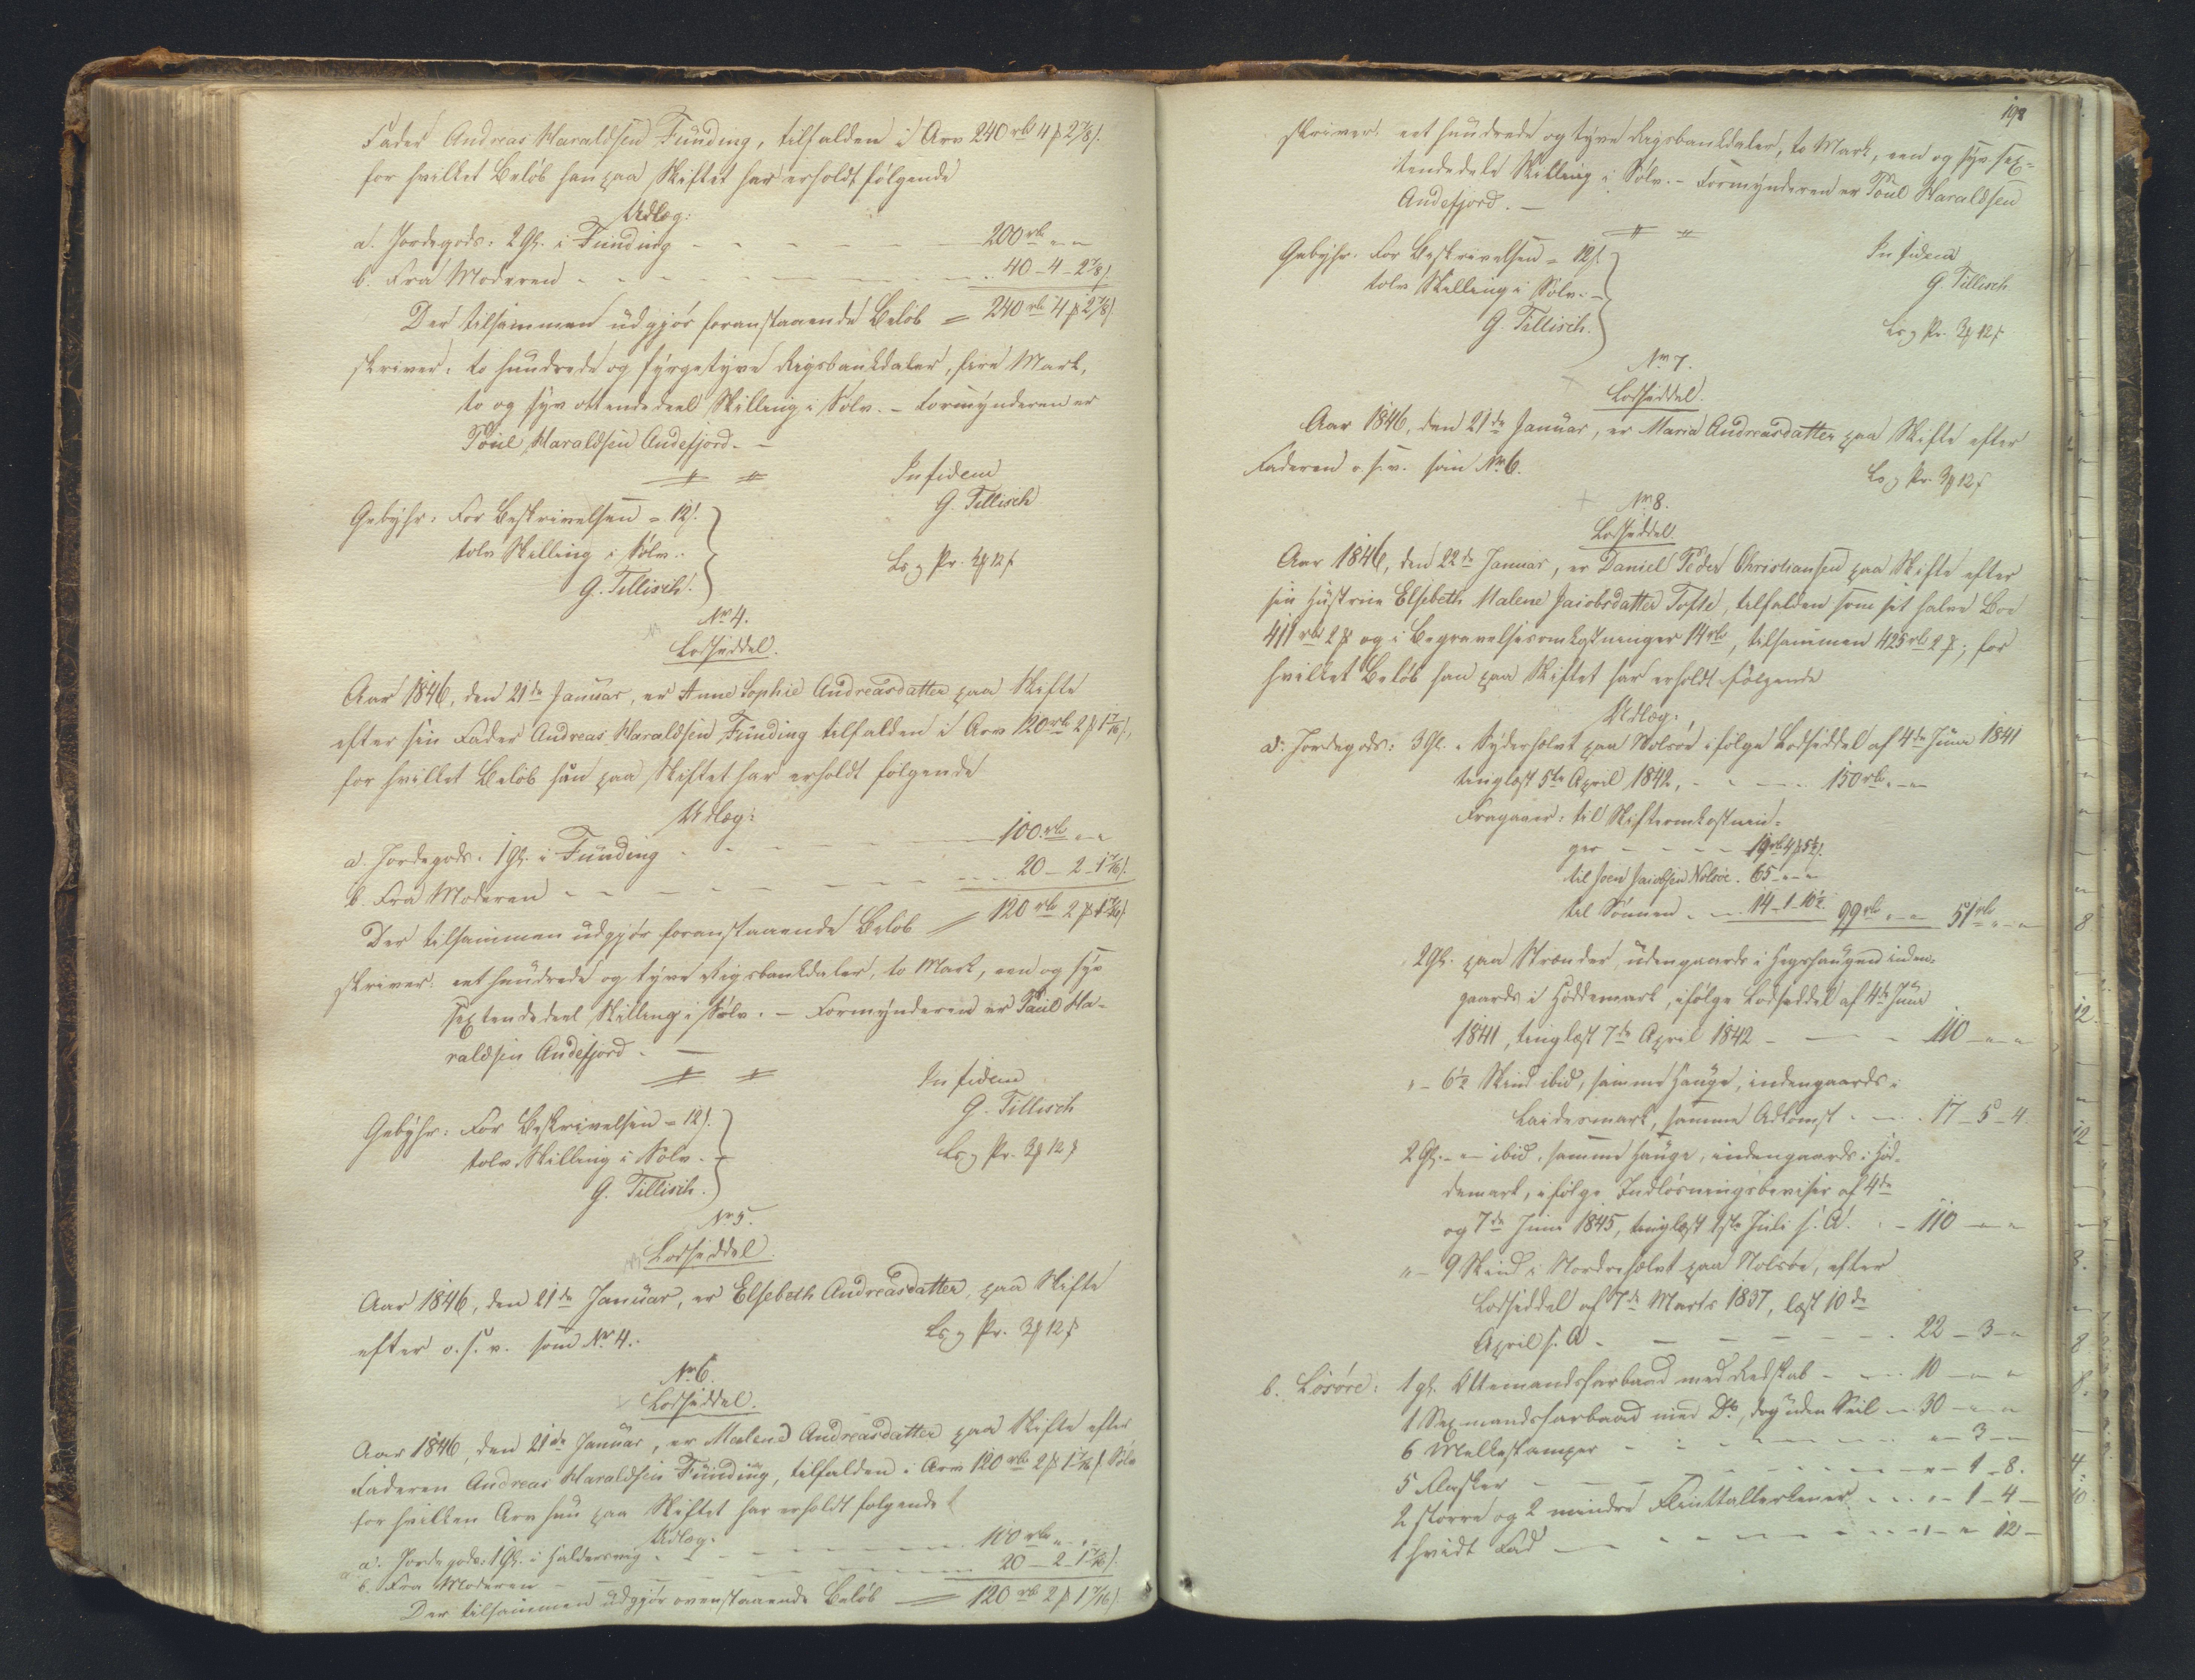 Fader Andreas Haraldsen Funding, tilfalden i Arv 240 rbd 4 ℳ 2⅞ ß.
for hvilket Beløb han paa Skiftet har erholdt følgende
Udlæg:
a. Jordegods: 2 Gl. i Funding - - - - - 200 rbd " - "
b. Fra Moderen - - - - - 40 - 4 - 2⅞ ß.
Der tilsammen udgjør foranstaaende Beløb = 240 rbd 4 ℳ 2⅞ ß
skriver: to hundrede og fyrgetyve Rigsbankdaler, fire Mark,
to og syv ottendedeel Skilling i Sølv. - Formynderen er
Poul Haraldsen Andefjord. -
Gebyhr: For Beskrivelsen = 12 ß.
tolv Skilling i Sølv.
G. Tillisch.
In fidem
G. Tillisch
No 4.
Lodseddel.
Aar 1846, den 21de Januar, er Anne Sophie Andreasdatter paa Skifte
efter sin Fader Andreas Haraldsen Funding tilfalden i Arv 120 rbd 2 ℳ 1 7/16 ß,
for hvilket Beløb hun paa Skiftet har erholdt følgende
Udlæg:
a. Jordegods: 1 Gl. i Funding - - - - - 100 rbd " - "
b. Fra Moderen - - - - - 20 - 2 - 1 7/16 ß.
Der tilsammen udgjør foranstaaende Beløb = 120 rbd 2 ℳ 1 7/16 ß
skriver: eet hundrede og tyve Rigsbankdaler, to Mark, een og syv
sextendedeel Skilling i Sølv. - Formynderen er Poul Ha-
raldsen Andefjord. -
Gebyhr: For Beskrivelsen = 12 ß.
tolv Skilling i Sølv. -
G. Tillisch.
In fidem
G. Tillisch
No 5.
Lodseddel.
Aar 1846, den 21de Januar, er Elsebeth Andreasdatter, paa Skifte
efter o. s. v. som No 4.
No 6.
Lodseddel.
Aar 1846, den 21de Januar, er Malene Andreasdatter paa Skifte efter
Faderen Andreas Haraldsen Funding, tilfalden i Arv 120 rbd 2 ℳ 1 7/16 ß Sølv
for hvilken Arv hun paa Skiftet har erholdt følgende
Udlæg:
a. Jordegods: 1 Gl. i Haldersvig - - - - - 100 rbd " - "
b. Fra Moderen - - - - - 20 - 2 - 1 7/16 ß.
Der tilsammen udgjør ovenstaaende Beløb = 120 rbd 2 ℳ 1 7/16 ß
198
skriver: eet hundrede og tyve Rigsbankdaler, to Mark, een og syv sex-
tendedele Skilling i Sølv. - Formynderen er Poul Haraldsen
Andefjord. -
Gebyhr. For Beskrivelsen = 12 ß.
tolv Skilling i Sølv. -
G. Tillisch.
In fidem
G. Tillisch
No 7.
Lodseddel.
Aar 1846, den 21de Januar, er Maria Andreasdatter paa Skifte efter
Faderen o. s. v. som No 6.
No 8.
Lodseddel.
Aar 1846, den 22de Januar, er Daniel Peder Christiansen paa Skifte efter
sin Hustrue Elsebeth Malene Jacobsdatter Tofte, tilfalden som sit halve Boe
411 rbd 2 ℳ og i Begravelsesomkostninger 14 rbd, tilsammen 425 rbd 2 ℳ; for
hvilket Beløb han paa Skiftet har erholdt følgende
Udlæg:
a: Jordegods: 3 Gl. i Syderhalvt paa Nolsøe ifølge Lodseddel af 4de Juni 1841
tinglæst 5te April 1842, - - - 150 rbd " - "
Fragaaer: til Skifteomkostnin-
ger - - - - 19 rbd 4 ℳ 5½ ß.
til Joen Jacobsen Nolsøe. 65 - " - "
til Sønnen - - 14 - 1 - 10½. 99 rbd " - " 51 rbd " - "
2 Gl. paa Strænder, udengaards i Hegshaugen inden-
gaards i Høddemark, ifølge Lodseddel af 4de Juni
1841, tinglæst 7de April 1842 - - - 110 - " - "
" - 6½ Skind ibid, samme Hauge, indengaards i
Laidesmark, samme Adkomst - - 17 - 5 - 4.
2 Gl. - " - ibid, samme Hauge, indengaards i Hød-
demark, ifølge Indløsningsbeviser af 4de
og 7de Juni 1845, tinglæst 1ste Juli s. A. - 110 - " - "
" - 9 Skind i Nordrehalvt paa Nolsøe, efter
Lodseddel af 7de Marts 1837, læst 10de
April s. A. - - - - 22 - 3 - "
b. Løsøre: 1 gl. Ottemandsfarbaad med Redskab - - - 10 - " - "
1 Sexmandsfarbaad med Do, dog uden Seil - 30 - " - "
6 Melkestamper - - - - " - 3 - "
5 Flasker - - - - " - 1 - 8.
2 større og 2 mindre Flinttallerkener - - " - 1 - 4 -
1 hvidt Fad - - - - " - " 12 -